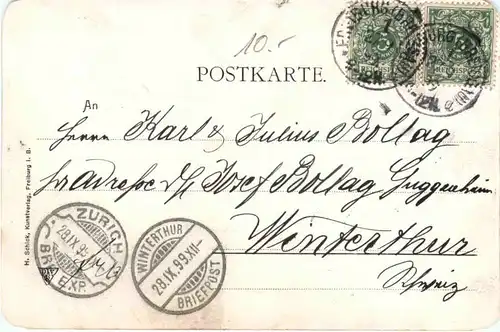 10.-
POSTKARTE.
An
Herrn Karl & Julius Bollag
pr Adresse d/H Josef Bollag Guggenheim
Winterthur
Schweiz
Hr. Schlick, Kunstverlag, Freiburg i. B.
ZÜRICH
28.IX.99
BRF. EXP.
WINTERTHUR
28.IX.99.XII-
BRIEFPOST
FREIBURG